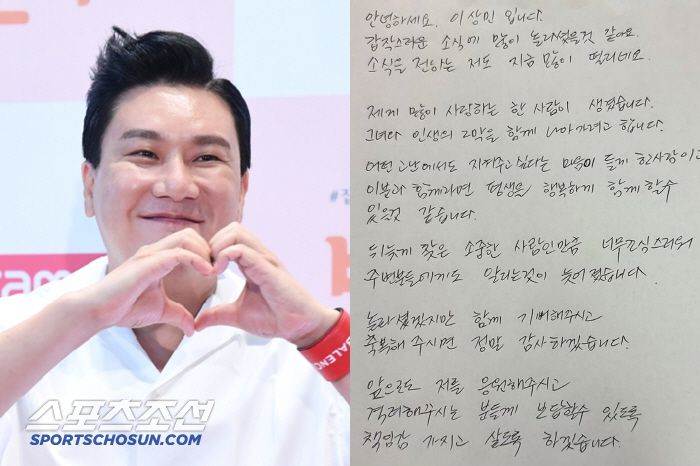 안녕하세요. 이상민 입니다.
갑작스러운 소식에 많이 놀라셨을것 같아요.
소식을 전하는 저도 지금 많이 떨리네요.
제게 많이 사랑하는 한 사람이 생겼습니다.
그녀와 인생의 2막을 함께 나아가려고 합니다.
어떤 고난에서도 지켜주고싶다는 마음이 들게 한사람이고
이분과 함께라면 평생을 행복하게 함께 할수
있을것 같습니다.
뒤늦게 찾은 소중한 사람인만큼 너무조심스러워
주변분들에게도 알리는것이 늦어졌습니다.
놀라셨겠지만 함께 기뻐해주시고
축복해 주시면 정말 감사하겠습니다.
앞으로도 저를 응원해주시고
격려해주시는 분들께 보답할수 있도록
책임감 가지고 살도록 하겠습니다.
스포츠조선
SPORTSCHOSUN.COM
ram
BALENC